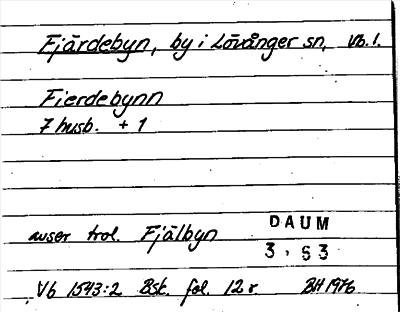 Fjärdebyn, by i Lövånger sn, Vb. l.
Fierdebynn
7 husb. + 1
DAUM
avser trol. Fjälbyn
3, 53
Vb 1543:2 Bsk. fol. 12 r. BH 1976